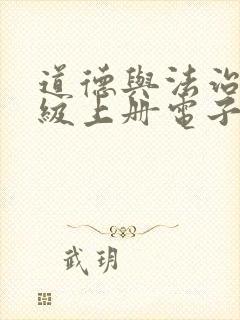 道德與法治
級上册電子
武玥